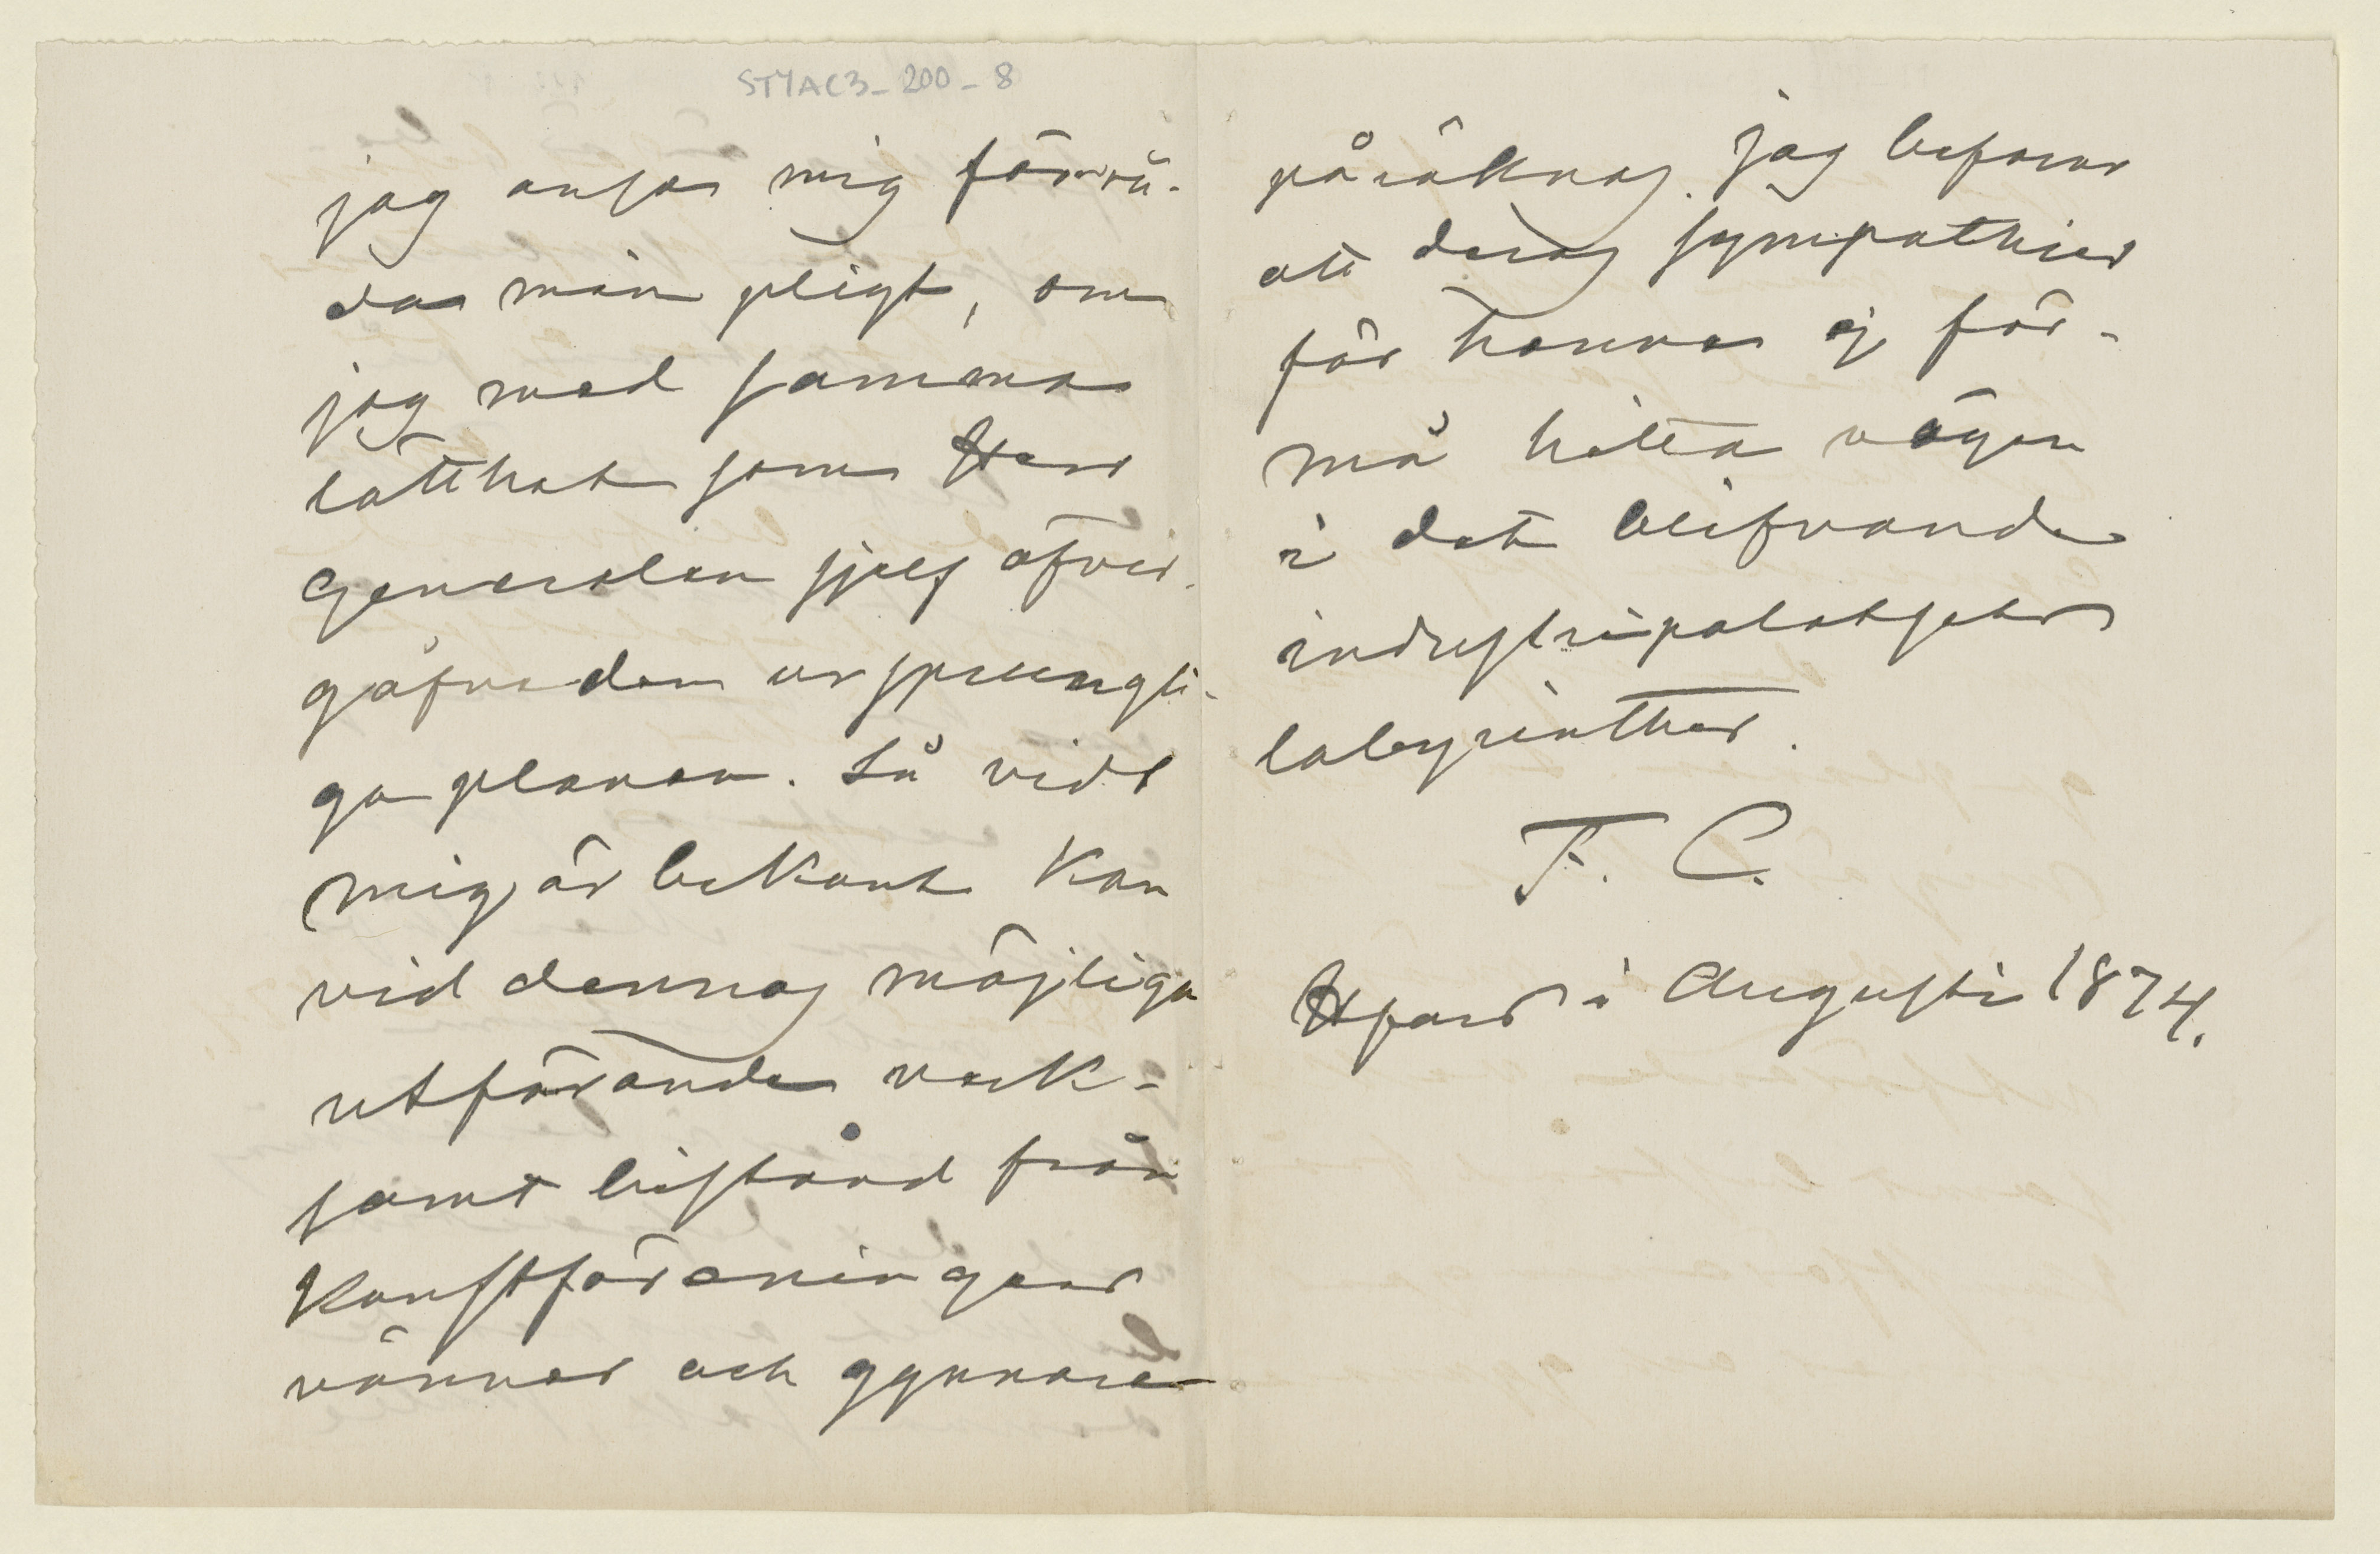 STYAC3_200_8
jag anser mig förrå-
da min pligt, om
jag med samma
lätthet som Herr
Generalen sjelf öfver-
gåfve den ursprungli-
ga planen. Så vidt
mig är bekant kan
vid dennas möjliga
utförande verk-
samt bistånd från
Konstföreningens
vänner och gynnare
påräknas. Jag befarar
att deras sympathier
för henne ej för-
må hitta vägen
i det blifvande
industripalatsets
labyrinther.
F. C.
Hfors i Augusti 1874.